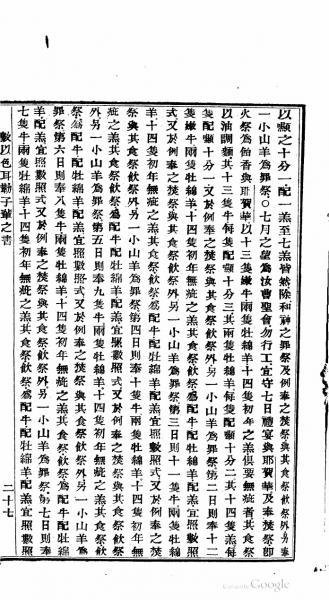 以麵之十分一配一羔至七羔皆然除和神之罪祭及例奉之焚祭與其食祭飲祭外另奉
一小山羊為罪祭○七月之望為汝曹聖會勿行工宜守七日禮宴與耶賀華及奉焚祭即
火祭為飴香與耶賀華以十三隻嫩牛兩隻牡綿羊十四隻初年之羔俱要無疵者其食祭
以油調麵其十三隻牛每隻配麵十分三其兩隻牡綿羊每隻配麵十分二其十四隻羔每
隻配麵十分一又於例奉之焚祭與其食祭飲祭外另一小山羊為罪祭第二日則奉十二
隻嫩牛兩隻牡綿羊十四隻初年無疵之羔其食祭飲祭為配牛配牡綿羊配羔宜照數照
式又於例奉之焚祭與其食祭飲祭外另一小山羊為罪祭第三日則十一隻牛兩隻牡綿
羊十四隻初年無疵之羔其食祭飲祭為配牛配牡綿羊配羔宜照數照式又於例奉之焚
祭與其食祭飲祭外另一小山羊為罪祭第四日則奉十隻牛兩隻牡綿羊十四隻初年無
疵之羔其食祭飲祭為配牛配牡綿羊配羔宜照數照式又於例奉之焚祭與其食祭飲祭
外另一小山羊為罪祭第五日則奉九隻牛兩隻牡綿羊十四隻初年無疵之羔其食祭飲
祭為配牛配牡綿羊配羔宜照數照式又於例奉之焚祭與其食祭飲祭外另一小山羊為
罪祭第六日則奉八隻牛兩隻牡綿羊十四隻初年無疵之羔其食祭飲祭為配牛配牡綿
羊配羔宜照數照式又於例奉之焚祭與其食祭飲祭外另一小山羊為罪祭第七日則奉
七隻牛兩隻牡綿羊十四隻初年無疵之羔其食祭飲祭為配牛配牡綿羊配羔宜照數照
數以色耳勒子輩之書
二十七
Google